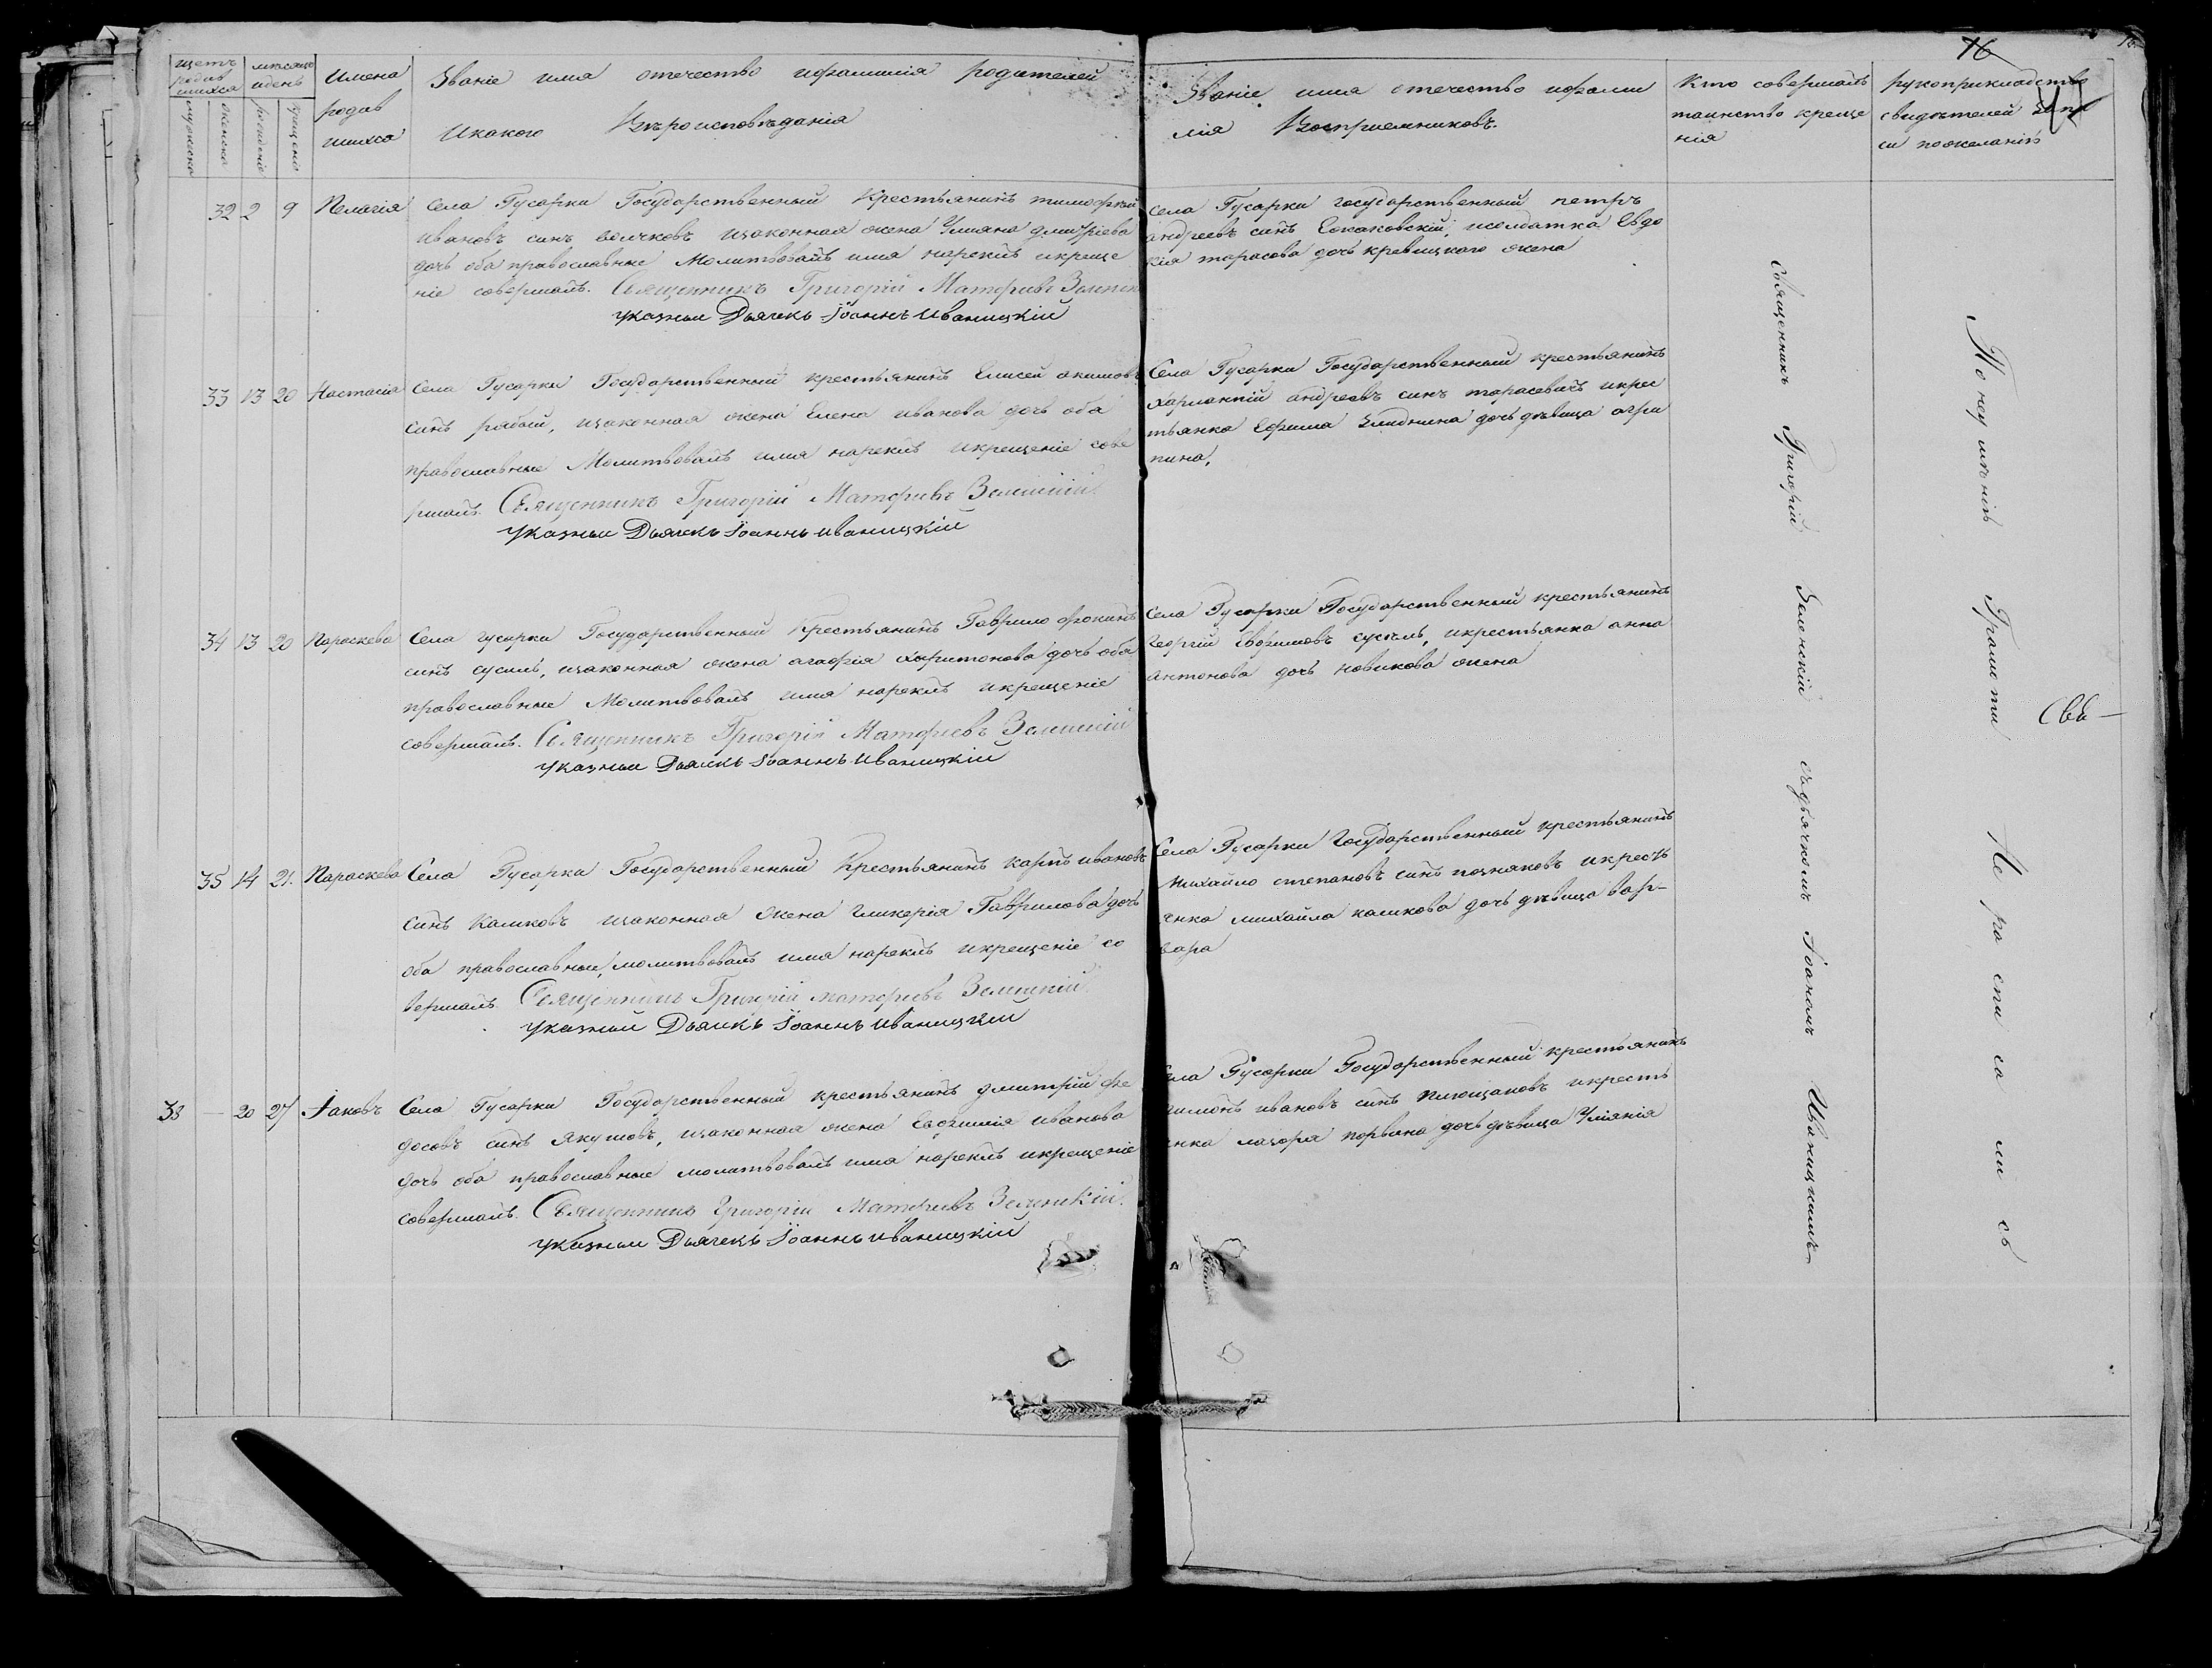 16
щетъ родив шихся
мужеска
женска
месяцъ идень
рожденiе
крещенiе
имена
родив
шихся
Званiе имя отечество ифамилiя родителей
Икакого Вѣроисповѣданiя
Званiе имя отечество ифами
лiя Воспрiемниковъ.
Кто совершалъ
таинство креще
нiя
рукоприкладство
свидѣтелей запи
си пожеланiю
32 2 9 Пелагiя
Села Гусарки Государственный Крестьянинъ тимофѣй
ивановъ синъ волчковъ изаконная жена Улияна дмитрiева
дочь оба православные Молитвовалъ имя нареклъ икреще
нiе совершалъ. Священникъ Григорiй Матфиевъ Зеленск
указный Дьячекъ Iоаннъ Иваницкiй
села Гусарки государственный петръ
андреевъ синъ Сожаковскiй, исолдатка Евдо
кiя тарасова дочь кревицкаго жена
33 13 20 Настасiя
Села Гусарки Государственный крестьянинъ Елисей акимовъ
синъ рябый, изаконная жена Елена иванова дочь оба
православные Молитвовалъ имя нареклъ икрещенiе сове
ршалъ. Священникъ Григорiй Матфиевъ Зеленскiй
указный Дьячекъ Iоаннъ иваницкiй
Села Гусарки Государственный крестьянинъ
харлампiй андреевъ синъ тарасевичъ икрес
тьянка Ефима дочь дѣвица агри
пина,
34 13 20 Параскева
Села гусарки Государственный Крестьянинъ Гаврило фокинъ
синъ сусиль, изаконная жена агафiя харитонова дочь оба
православные Молитвовалъ имя нареклъ икрещенiе
совершалъ. Священникъ Григорiй Матфиевъ Зеленскiй
указный Дьячекъ Iоаннъ иваницкiй
Села Гусарки Государственный крестьянинъ
Георгiй Евфимовъ сусиль, икрестьянка анна
антонова дочь новикова жена
35 14 21. Параскева
Села Гусарки Государственный Крестьянинъ карпъ ивановъ
синъ Каликовъ изаконная жена гликерiя Гаврилова дочь
оба православные, молитвовалъ имя нареклъ икрещенiе со
вершалъ. Священникъ Григорiй матфиевъ Зеленскiй
указный Дьячекъ Iоаннъ иваницкiй
Села Гусарки Государственный крестьянинъ
михайло степановъ синъ позняковъ икресть
янка михайла каликова дочь дѣвица вар-
вара
38 — 20 27 Iаковъ
Села Гусарки Государственный крестьянинъ дмитрiй фе
досовъ синъ якушовъ, изаконная жена Евфимiя иванова
дочь оба православные молитвовалъ имя нареклъ икрещенiе
совершалъ. Священникъ Григорiй Матфиевъ Зеленскiй.
указный Дьячекъ Iоаннъ иваницкiй
ела Гусарки Государственный крестьянинъ
ивановъ синъ икресть
янка лазоря дочь дѣвица Улiянiя
Священникъ Григорiй Зеленскiй съдьячкомъ Iоаномъ Иваницкимъ
По неумѣнiю Грамоти Не ра спи са ли сь
Свѣ—